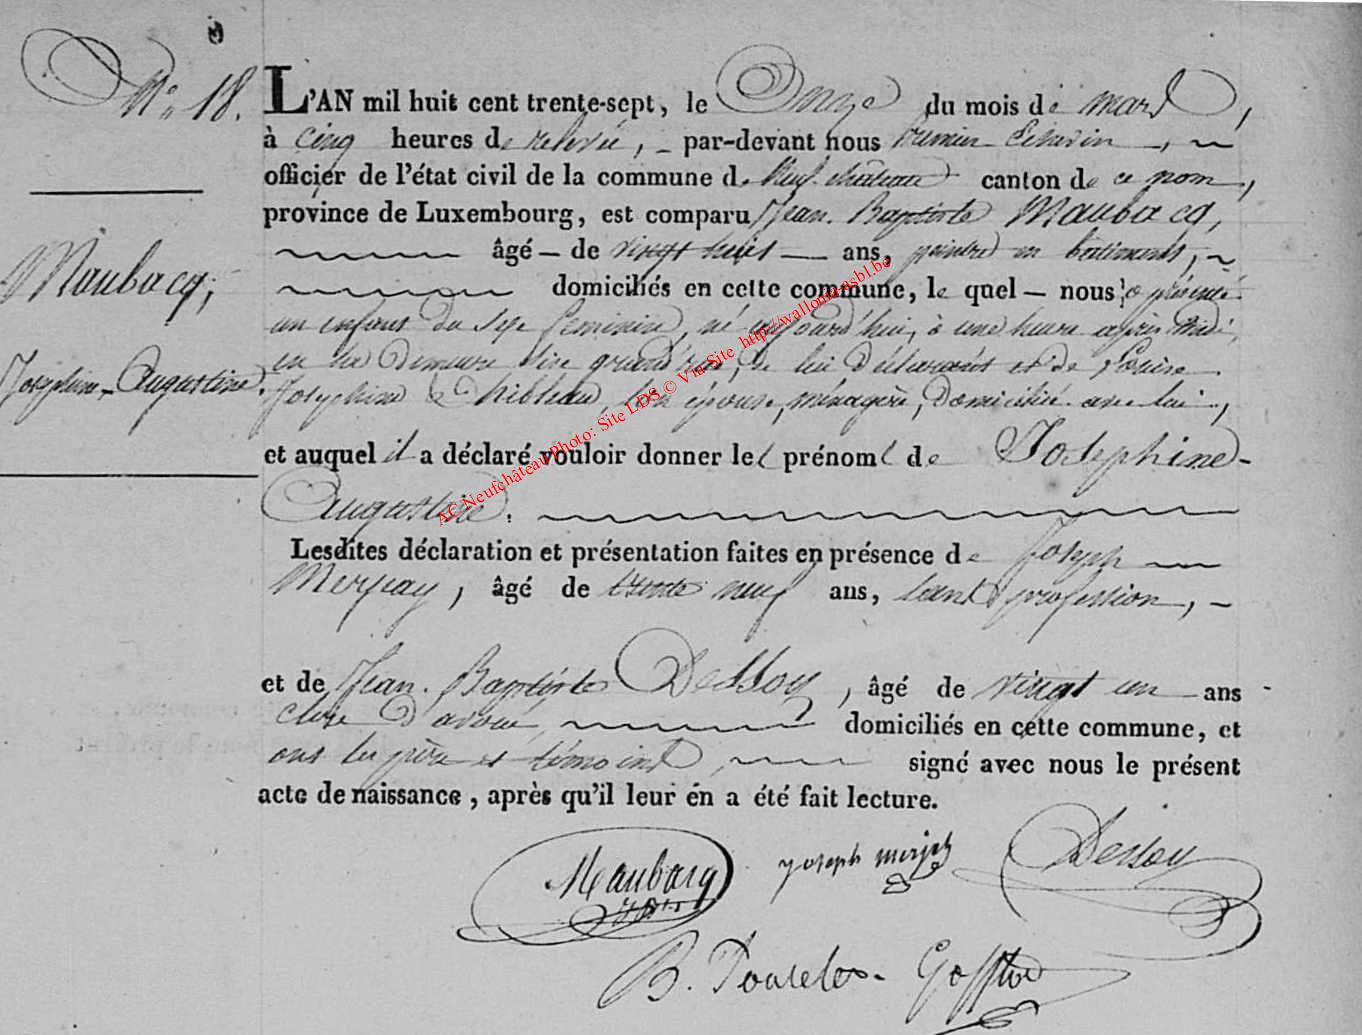 N° 18.
Maubacq,
Josephine-Augustine.
L'AN mil huit cent trente-sept, le Onze du mois de mars,
à cinq heures de relevée, par-devant nous Premier Echevin,
officier de l'état civil de la commune de Neufchateau canton de ce nom,
province de Luxembourg, est comparu Jean Baptiste Maubacq,
âgé de vingt huit ans, peintre en batiments,
domiciliés en cette commune, le quel nous a présenté
un enfant du sexe feminin, né aujourd'hui, à une heure après midi,
en sa demeure dite grand'rue, de lui déclarant et de Louise
Josephine Thibleau, son épouse, ménagère, domiciliée avec lui,
et auquel il a déclaré vouloir donner les prénoms de Josephine-
Augustine.
Lesdites déclaration et présentation faites en présence de Joseph
Merjay, âgé de trente neuf ans, sans profession,
et de Jean Baptiste Dessoy, âgé de vingt un ans
clerc d'avoué, domiciliés en cette commune, et
ont les père et témoins, signé avec nous le présent
acte de naissance, après qu'il leur en a été fait lecture.
Maubacq
Joseph merjay
Dessoy
B. Goffin
AC Neufchâteau Photo: Site LDS © Via Site http://wallonia-asbl.be